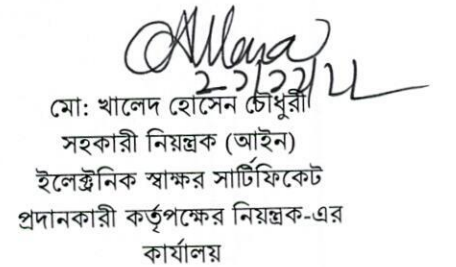 মো: খালেদ হোসেন চৌধুরী
সহকারী নিয়ন্ত্রক (আইন)
ইলেক্ট্রনিক স্বাক্ষর সার্টিফিকেট
প্রদানকারী কর্তৃপক্ষের নিয়ন্ত্রক-এর
কার্যালয়